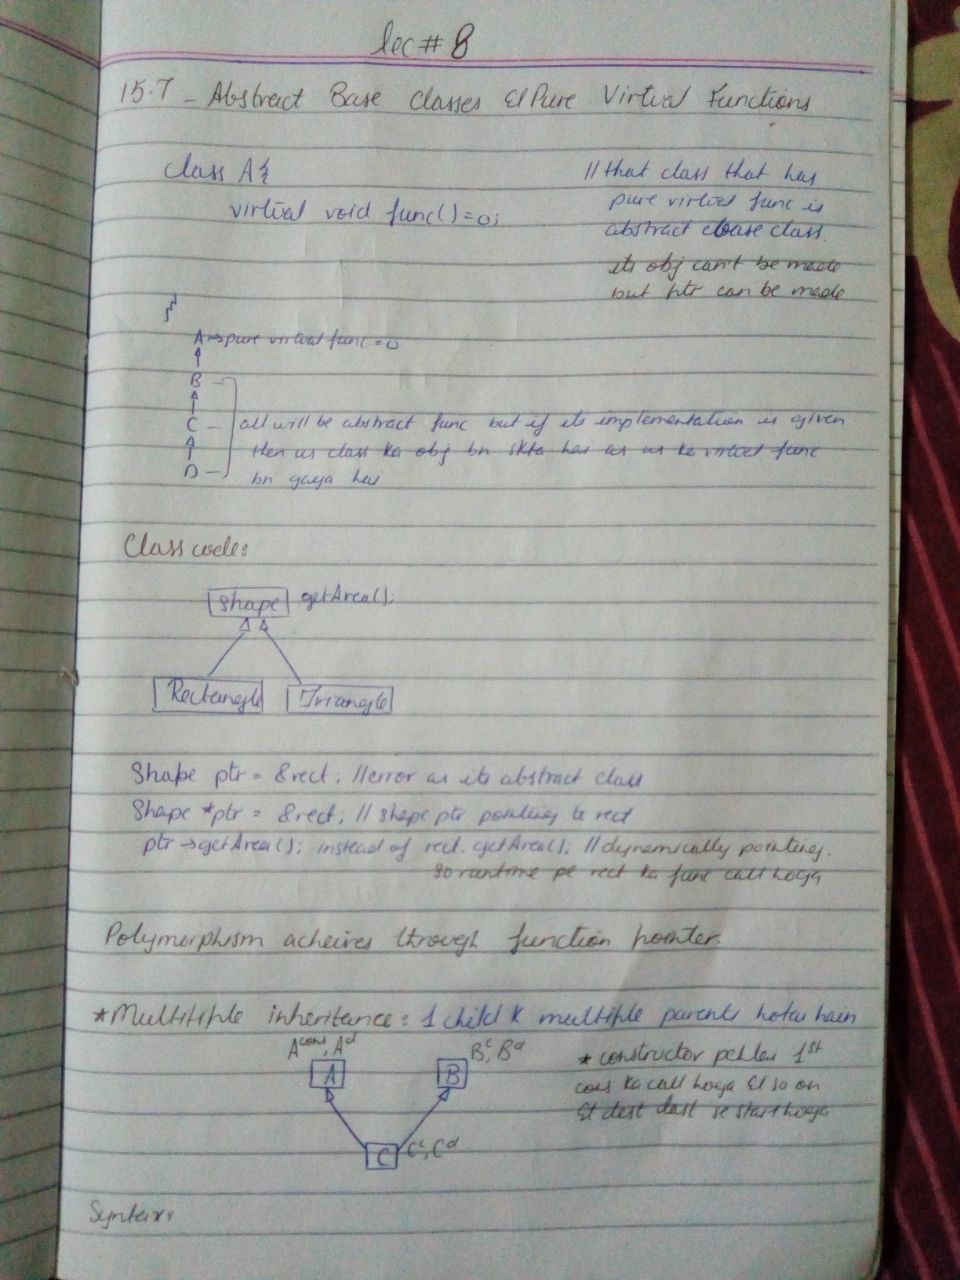 lec # 8
15.7 - Abstract Base Classes & Pure Virtual Functions
class A{
virtual void func()=0;
}
// that class that has
pure virtual func is
abstract base class.
its obj can't be made
but ptr can be made
A → pure virtual func = 0
B
C
D
all will be abstract func but if its implementation is given
then us class ka obj bn skta hai as us ke virtual func
bn gaya hai
Class code:
Shape getArea();
Rectangle Triangle
Shape ptr = &rect; // error as its abstract class
Shape *ptr = &rect; // shape ptr pointing to rect
ptr → getArea(); instead of rect.getArea(); // dynamically pointing.
so runtime pe rect ka func call hoga
Polymorphism acheives through function pointer.
* Multitiple inheritance: 1 child k multiple parents hotay hain
A^cons, A^d B^c, B^d
A B
C C^c, C^d
* constructor pehlay 1st
cons ka call hoga & so on
& dest last se start hoga
Syntax: